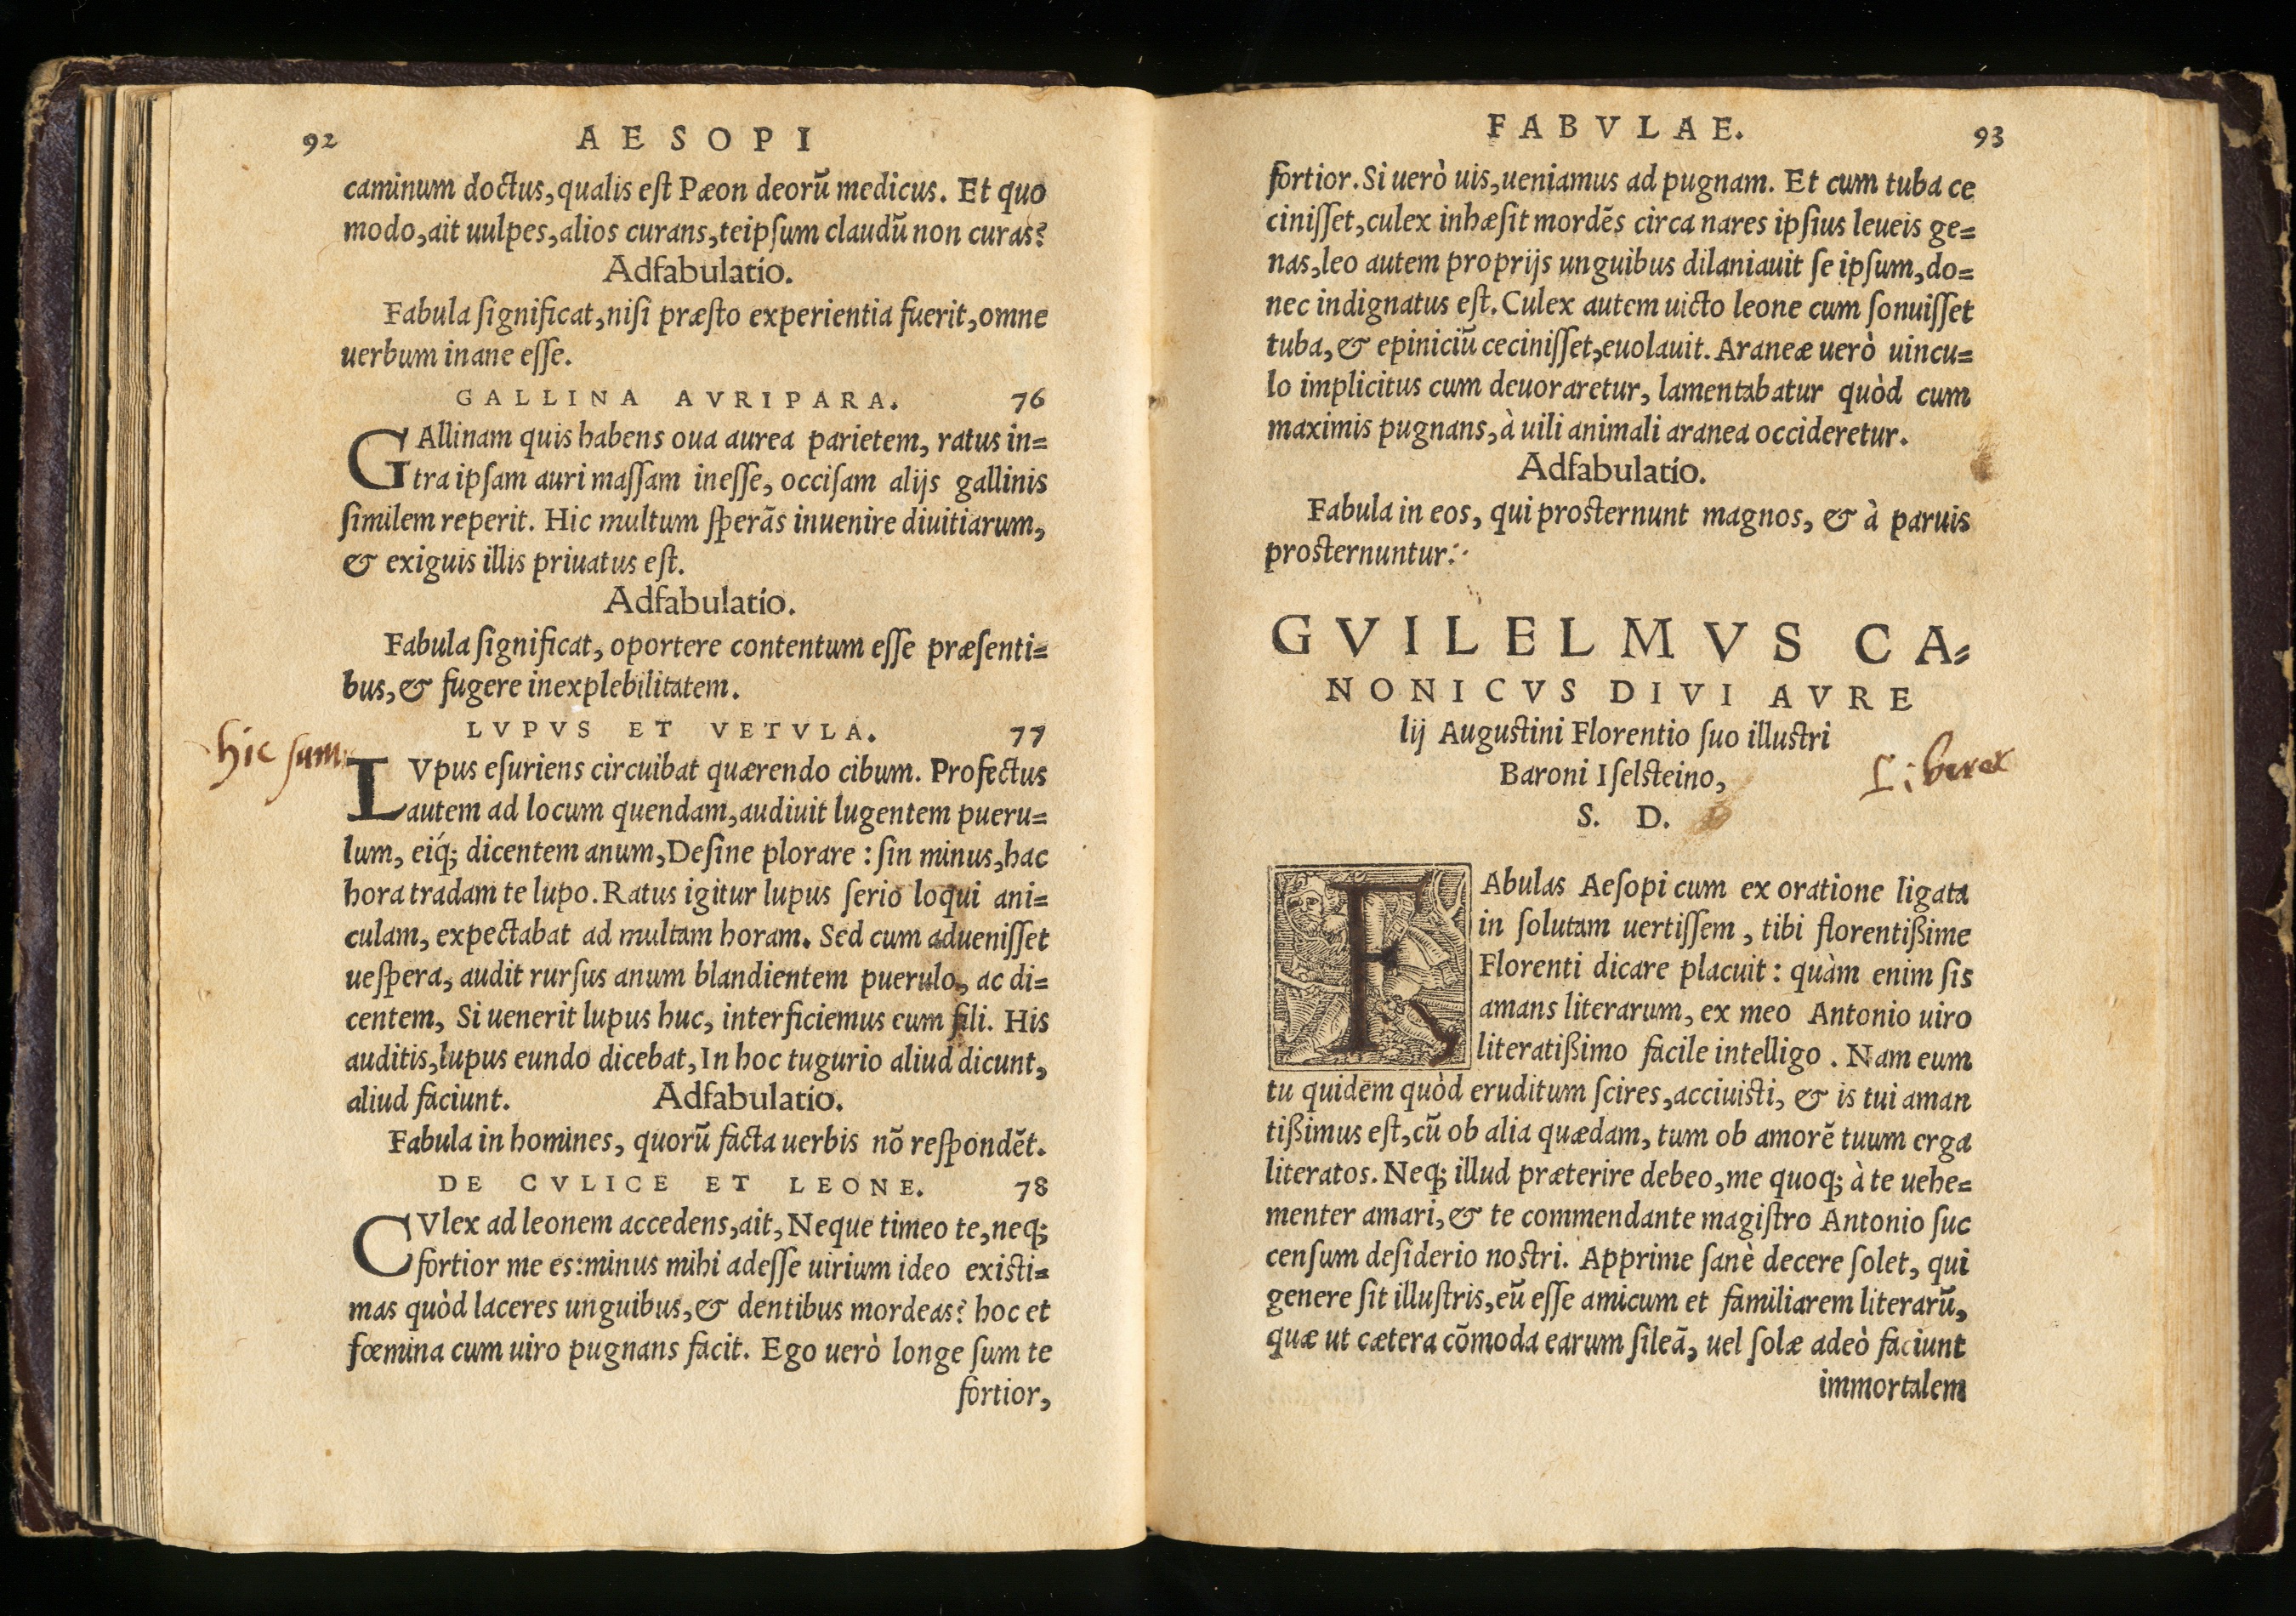 92 AESOPI
caminum doctus, qualis est Pæon deorū medicus. Et quo
modo, ait uulpes, alios curans, teipsum claudū non curas?
Adfabulatio.
Fabula significat, nisi præsto experientia fuerit, omne
uerbum inane esse.
GALLINA AVRIPARA. 76
GAllinam quis habens oua aurea parietem, ratus in=
tra ipsam auri massam inesse, occisam alijs gallinis
similem reperit. Hic multum sperās inuenire diuitiarum,
& exiguis illis priuatus est.
Adfabulatio.
Fabula significat, oportere contentum esse præsenti=
bus, & fugere inexplebilitatem.
LVPVS ET VETVLA. 77
hic sum
LVpus esuriens circuibat quærendo cibum. Profectus
autem ad locum quendam, audiuit lugentem pueru=
lum, eiq́; dicentem anum, Desine plorare : sin minus, hac
hora tradam te lupo. Ratus igitur lupus serio loqui ani=
culam, expectabat ad multam horam. Sed cum aduenisset
uespera, audit rursus anum blandientem puerulo, ac di=
centem, Si uenerit lupus huc, interficiemus eum fili. His
auditis, lupus eundo dicebat, In hoc tugurio aliud dicunt,
aliud faciunt. Adfabulatio.
Fabula in homines, quorū facta uerbis nō respondēt.
DE CVLICE ET LEONE. 78
CVlex ad leonem accedens, ait, Neque timeo te, neq;
fortior me es: minus mihi adesse uirium ideo existi=
mas quòd laceres unguibus, & dentibus mordeas? hoc et
fœmina cum uiro pugnans facit. Ego uerò longe sum te
fortior,
FABVLAE. 93
fortior. Si uerò uis, ueniamus ad pugnam. Et cum tuba ce
cinisset, culex inhæsit mordēs circa nares ipsius leueis ge=
nas, leo autem proprijs unguibus dilaniauit se ipsum, do=
nec indignatus est. Culex autem uicto leone cum sonuisset
tuba, & epiniciū cecinisset, euolauit. Araneæ uerò uincu=
lo implicitus cum deuoraretur, lamentabatur quòd cum
maximis pugnans, à uili animali aranea occideretur.
Adfabulatio.
Fabula in eos, qui prosternunt magnos, & à paruis
prosternuntur.
GVILELMVS CA=
NONICVS DIVI AVRE
lij Augustini Florentio suo illustri
Baroni Iselsteino,
S. D.
FAbulas Aesopi cum ex oratione ligata
in solutam uertissem, tibi florentißime
Florenti dicare placuit : quàm enim sis
amans literarum, ex meo Antonio uiro
literatißimo facile intelligo. Nam eum
tu quidem quòd eruditum scires, acciuisti, & is tui aman
tißimus est, cū ob alia quædam, tum ob amorē tuum erga
literatos. Neq; illud præterire debeo, me quoq; à te uehe=
menter amari, & te commendante magistro Antonio suc
censum desiderio nostri. Apprime sanè decere solet, qui
genere sit illustris, eū esse amicum et familiarem literarū,
quæ ut cætera cōmoda earum sileā, uel solæ adeò faciunt
immortalem